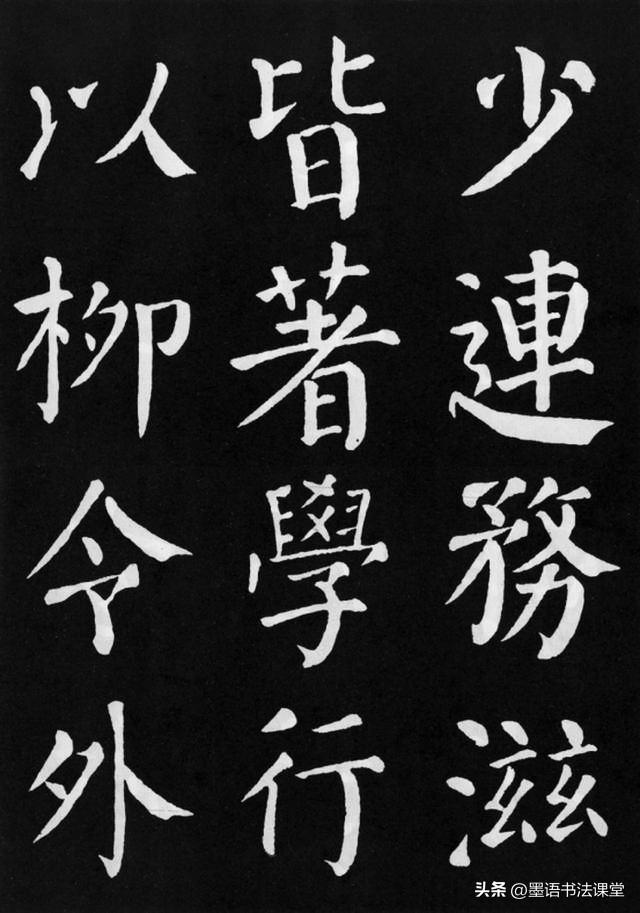 少連務滋
皆著學行
以柳令外
头条 @墨语书法课堂